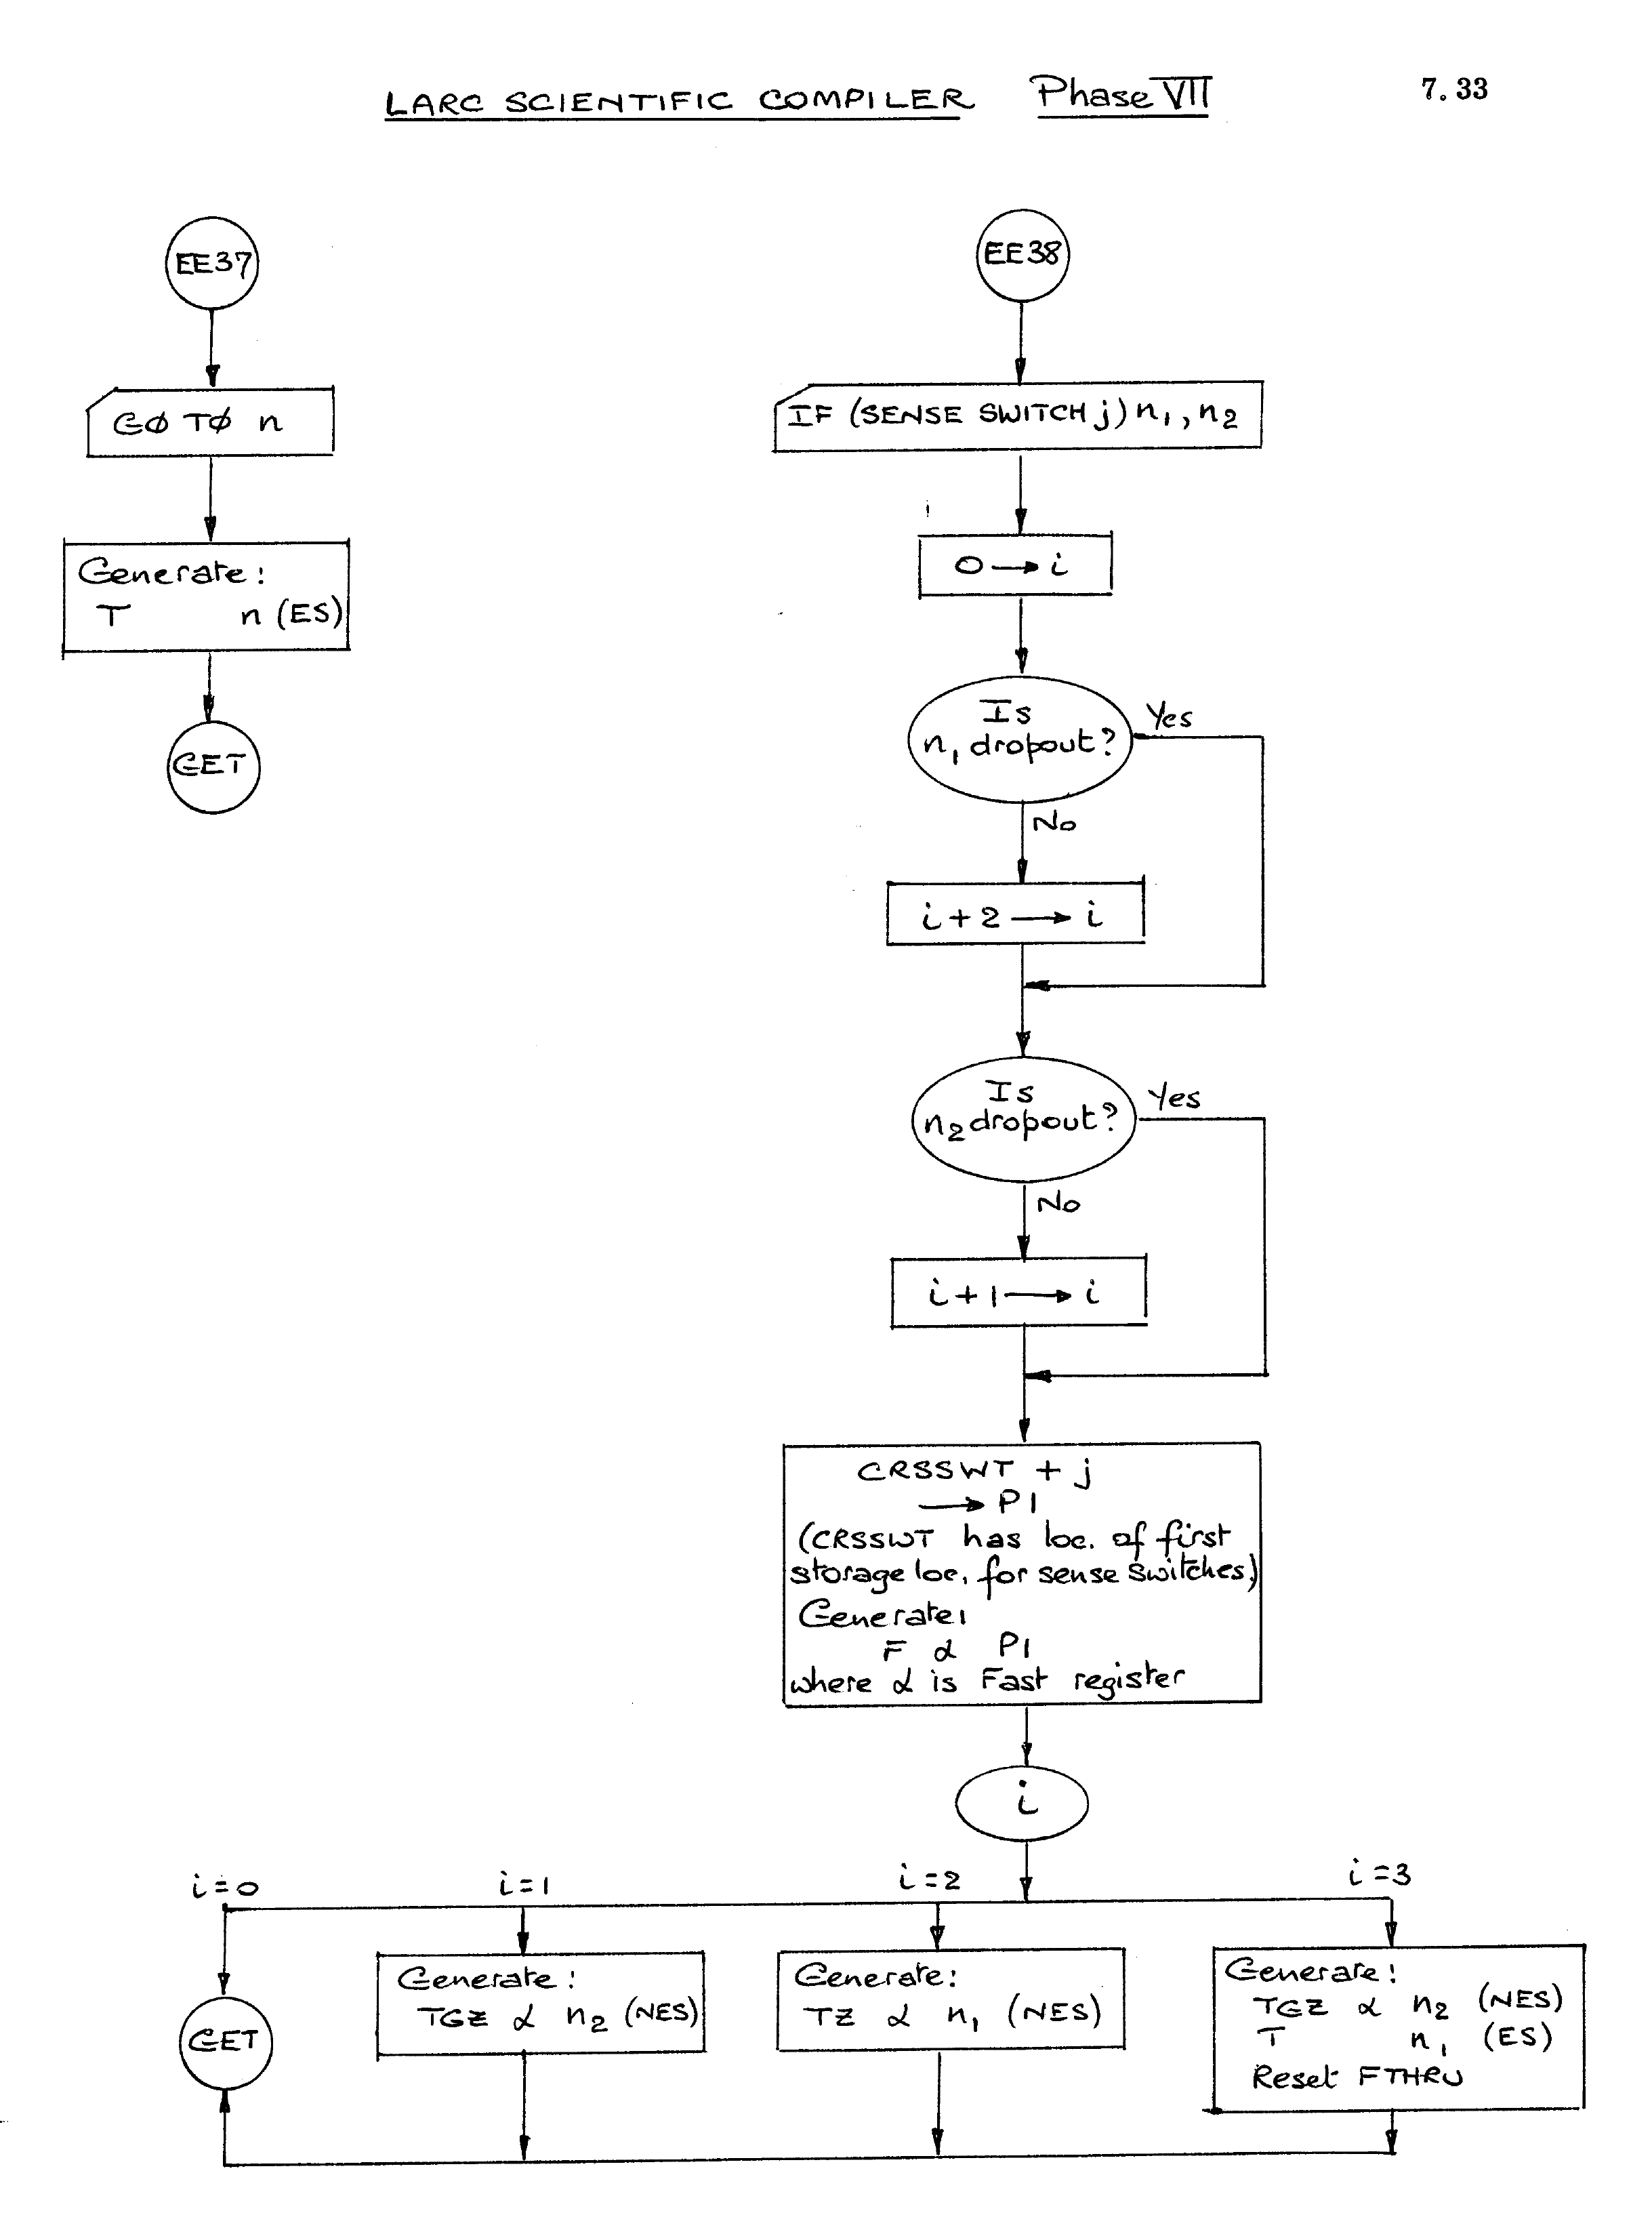 LARC SCIENTIFIC COMPILER Phase VII 7.33
EE37
GØ TØ n
Generate:
T n (ES)
GET
EE38
IF (SENSE SWITCH j) n₁, n₂
0 → i
Is
n₁ dropout?
Yes
No
i + 2 → i
Is
n₂ dropout?
Yes
No
i + 1 → i
CRSSWT + j
→ P1
(CRSSWT has loc. of first
storage loc. for sense switches)
Generate:
F α P1
where α is Fast register
i
i = 0
i = 1
i = 2
i = 3
GET
Generate:
TGZ α n₂ (NES)
Generate:
TZ α n₁ (NES)
Generate:
TGZ α n₂ (NES)
T n₁ (ES)
Reset FTHRU